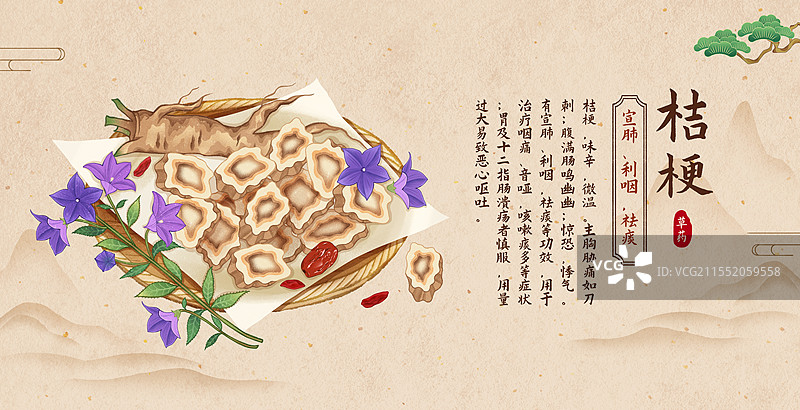 桔梗
草药
宣肺、利咽、祛痰
桔梗,味辛,微温。主胸胁痛如刀
刺;腹满肠鸣幽幽;惊恐,悸气。
有宣肺,利咽,祛痰等功效,用于
治疗咽痛,音哑,咳嗽痰多等症状
;胃及十二指肠溃疡者慎服,用量
过大易致恶心呕吐。
VCG
VCG211552059558